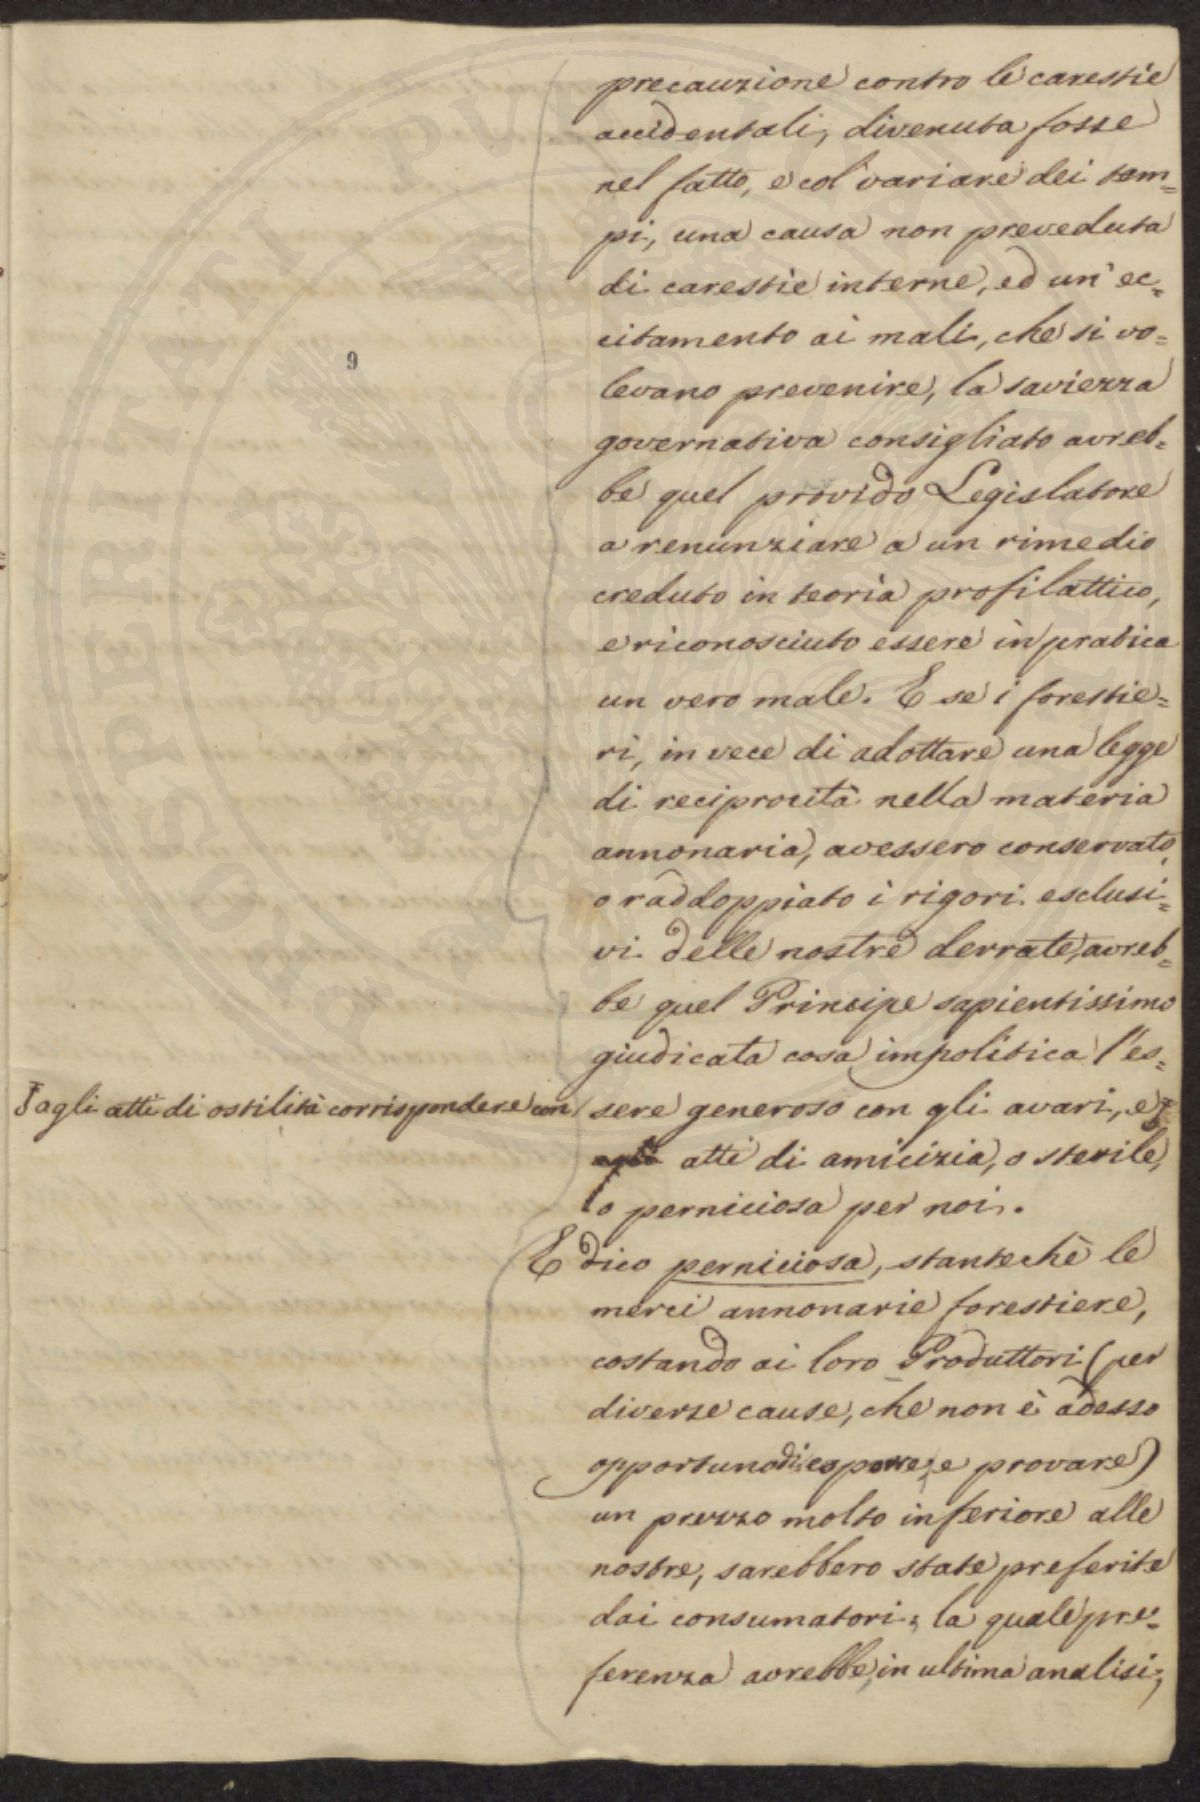 precauzione contro le carestie
accidentali, divenuta fosse
nel fatto, e col variare dei tem=
pi, una causa non preveduta
di carestie interne, ed un' ec=
citamento ai mali, che si vo=
levano prevenire, la saviezza
governativa consigliato avreb=
be quel provido Legislatore
a renunziare a un rimedio
creduto in teoria profilattico,
e riconosciuto essere in pratica
un vero male. E se i forestie=
ri, in vece di adottare una legge
di reciprocità nella materia
annonaria, avessero conservato,
o raddoppiato i rigori esclusi=
vi delle nostre derrate, avreb=
be quel Principe sapientissimo
giudicata cosa impolitica l'es=
sere generoso con gli avari, e
agli atti di ostilità corrispondere con
atti di amicizia, o sterile,
o perniciosa per noi.
E dico perniciosa, stantechè le
merci annonarie forestiere,
costando ai loro Produttori (per
diverse cause, che non è adesso
opportuno di esporre, e provare)
un prezzo molto inferiore alle
nostre, sarebbero state preferite
dai consumatori; la quale pre=
ferenza avrebbe, in ultima analisi,
9
PROSPERITATI PUBLICAE AUGENDAE